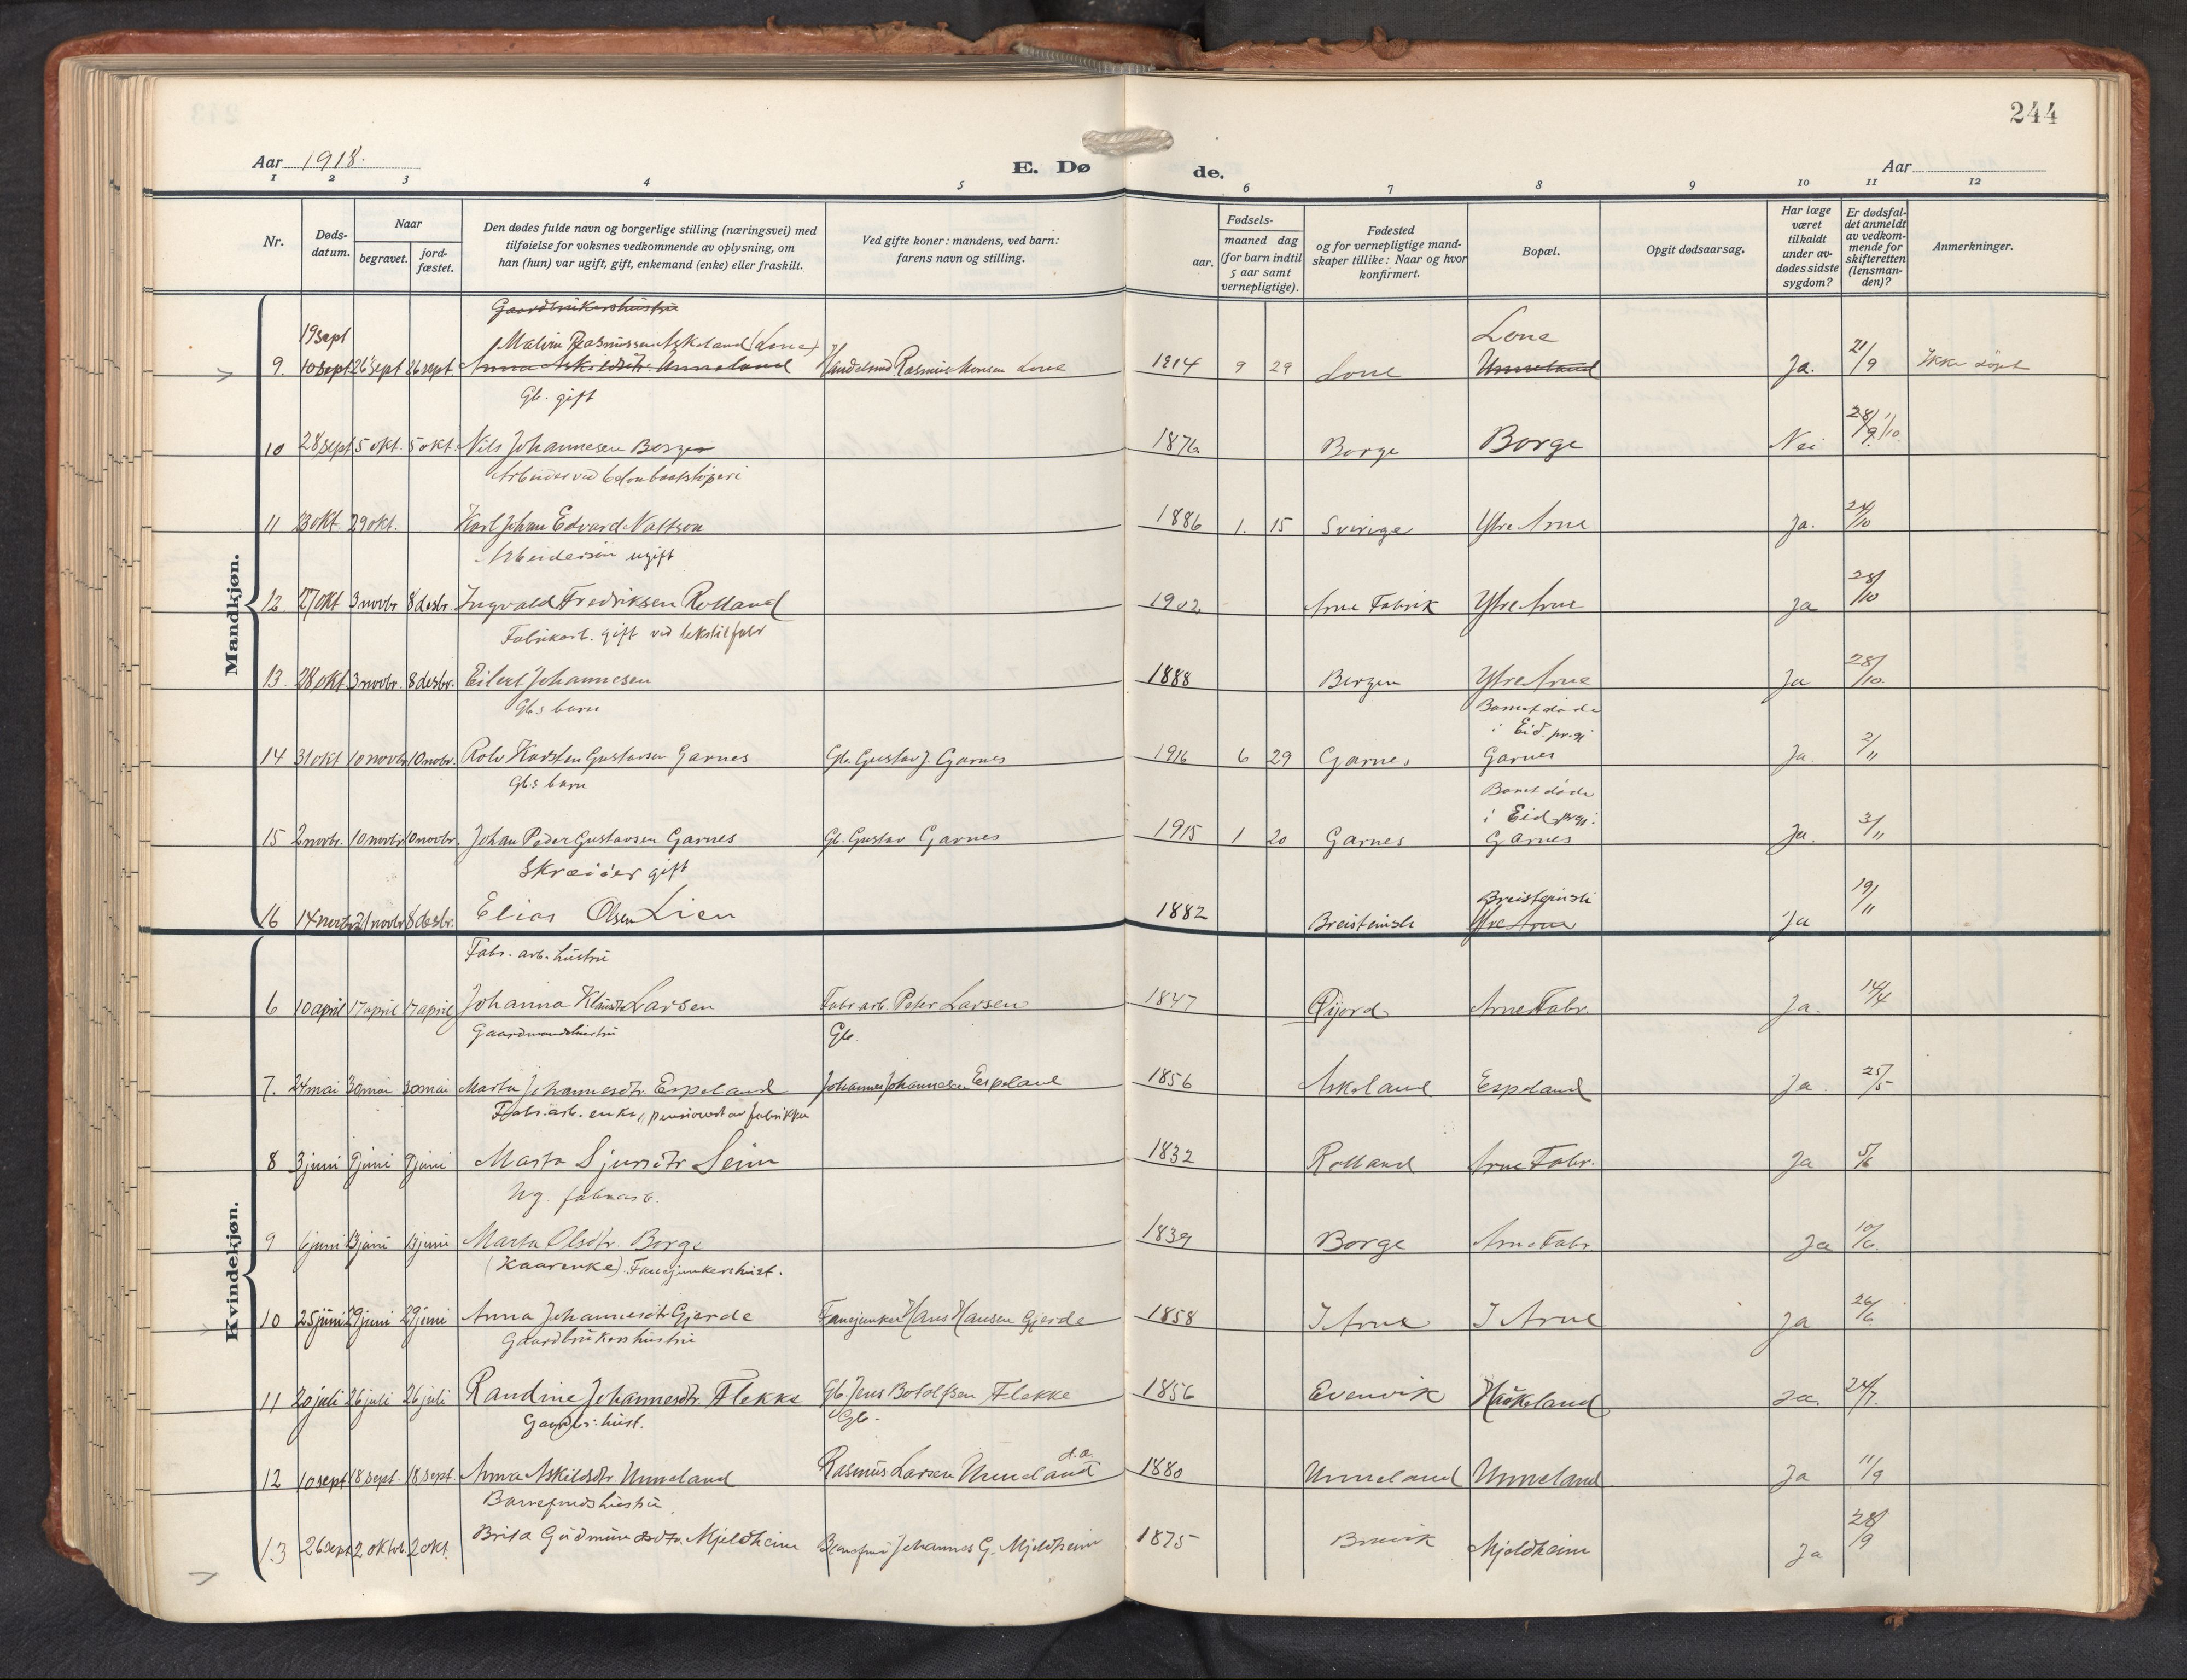 244
Aar 1918.
E. Døde.
Aar
1 2 3 4 5 6 7 8 9 10 11 12
Nr.
Dødsdatum.
Naar
begravet.
jordfæstet.
Den dødes fulde navn og borgerlige stilling (næringsvei) med
tilføielse for voksnes vedkommende av oplysning, om
han (hun) var ugift, gift, enkemand (enke) eller fraskilt.
Ved gifte koner: mandens, ved barn:
farens navn og stilling.
Fødsels-
aar.
maaned dag
(for barn indtil
5 aar samt
vernepligtige).
Fødested
og for vernepligtige mand-
skaper tillike: Naar og hvor
konfirmert.
Bopæl.
Opgit dødsaarsag.
Har læge
været
tilkaldt
under av-
dødes sidste
sygdom?
Er dødsfal-
det anmeldt
av vedkom-
mende for
skifteretten
(lensman-
den)?
Anmerkninger.
Mandkjøn.
Gaardbrukershustru
19 sept Malvin Rasmussen Askeland (Lone) Lone
9. 10 sept 26 sept 26 sept Anna Askildsdtr. Unneland Rasmus Monsen Lone 1914 9 29 Lone Unneland Ja. 21/9 Ikke døpt
Gb. gift
10 28 sept 5 okt. 5 okt. Nils Johannesen Borge 1876 Borge Borge Nei 28/9 1/10
Arbeider ved betonbaatstøperi
11 23 okt. 29 okt. Karl Johan Edvard 1886 1. 15 Sverige Ytre Arne Ja. 24/10
Arbeidersøn ugift
12. 27 okt 3 novbr 8 desbr. Ingvald Fredriksen Rolland 1902 Arne Fabrik Ytre Arne Ja 28/10
Fabrikarb. gift ved tekstilfabr
13. 28 okt 3 novbr. 8 desbr. Eilert Johannesen 1888 Bergen Ytre Arne Ja 28/10
Gb.s barn Barnet døde
i Eid prgj
14 31 okt 10 novbr 10 novbr. Rolv Karsten Gustavsen Garnes Gb. Gustav J. Garnes 1916 6 29 Garnes Garnes Ja 2/11
Gb.s barn Barnet døde
i Eid prgj.
15 2 novbr. 10 novbr 10 novbr. Johan Peder Gustavsen Garnes Gb. Gustav Garnes 1915 1 20 Garnes Garnes Ja. 3/11
Skrædder gift
16 14 novbr 21 novbr 8 desbr. Elias Olsen Lien 1882 Ytre Arne Ja 19/11
Kvindekjøn.
Fabr. arb. hustru
6 10 april 17 april 17 april Johanna Larsen Fabr arb. Peter Larsen 1847 Arne Fabr. Ja. 14/4
Gaardmandshustru Gb.
7. 24 mai 30 mai 30 mai Marta Johannesdtr. Espeland Johannes Johannesen Espeland 1856 Askeland Espeland Ja. 25/5
Fabr. arb. enke, pensionert av fabrikken
8 3 juni 9 juni 9 juni Marta Sjursdtr Seim 1832 Rolland Arne Fabr. Ja 5/6
Ug. fabrarb.
9 6 juni 13 juni 13 juni Marta Olsdtr. Borge 1839 Borge Arne Fabr Ja 10/6.
(Kaarenke). Fanejunkershust.
10 25 juni 29 juni 29 juni Anna Johannesdtr Gjerde Fanejunker Hans Hansen Gjerde 1858 I Arne I Arne Ja 26/6
Gaardbrukershustru
11 20 juli 26 juli 26 juli Randine Johannesdtr. Flekke Gb. Jens Botolfsen Flekke 1856 Evenvik Haukeland Ja. 24/7.
Gaardbr. hust. Gb.
12 10 sept 18 sept. 18 sept. Anna Askildsdtr. Unneland Rasmus Larsen Unneland d.a. 1880 Unneland Unneland Ja 11/9
13 26 sept 2 oktob. 2 okt. Brita Gudmundsdtr. Mjeldheim Johannes G. Mjeldheim 1875 Bruvik Mjeldheim Ja 28/9